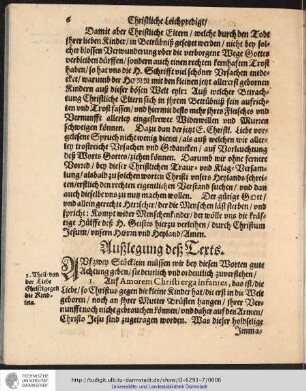 6 Christliche Leichpredigt/
Damit aber Christliche Eltern/ welche durch den Todt
ihrer lieben Kinder/ in Betrübnüß gesetzet werden/ nicht bey sol-
cher blossen Verwunderung vber die verborgene Wege Gottes
verbleiben dürffen/ sondern auch einen rechten kernhafften Trost
haben/ so hat vns die H. Schrifft viel schöner Vrsachen entde-
cket/ warumb der HERR mit den kleinen jetzt allererst gebornen
Kindern auß dieser bösen Welt eyle: Auß welcher Betrach-
tung Christliche Eltern sich in jhrem Betrübnüß fein auffrich-
ten vnd Trost fassen/ vnd hiermit desto mehr jhres Fleisches vnd
Vernunfft allerley eingestrewte Widerwillen vnd Murren
schweigen können. Dazu dan der jetzt E. Christl. Liebe vor-
gelesener Spruch nicht wenig dienet/ als auß welchem wir aller-
ley trostreiche Vrsachen vnd Gedancken/ auß Verleuchtung
deß Worts Gottes/ ziehen können. Darumb wir ohne fernere
Vorred/ bey dieser Christlichen Traur- vnd Klag-Versam-
lung/ alsbald zu solchen worten Christi vnsers Heylands schrei-
ten/ erstlich den rechten eigentlichen Verstand suchen/ vnd dan
auch dieselbe vns zu nutz machen wollen. Der gütige GOtt/
vnd allein gerechte Hertscher/ der die Menschen läst sterben/ vnd
spricht: Kompt wider Menschenkinder/ der wölle vns die kräff-
tige Hülffe deß H. Geistes hierzu verleihen/ durch Christum
Jesum/ vnsern Herren vnd Heyland/ Amen.
Außlegung deß Texts.
1. Theil von
der Liebe
Christi gegen
die Kind-
lein.
AUff zwey Stücklein müssen wir bey diesen Worten gute
Achtung geben/ sie deutlich vnd ordentlich zuverstehen/
1. Auff Amorem Christi erga infantes, das ist/ die
Liebe/ so Christus gegen die kleine Kinder hat/ die erst in die Welt
geboren/ noch an jhrer Mutter Brüsten hangen/ jhrer Ver-
nunfft noch nicht gebrauchen können/ vnd daher auff den Armen/
Christo Jesu sind zugetragen worden. Was dieser holdselige
Imma-
http://tudigit.ulb.tu-darmstadt.de/show/G-6293-7/0006
Universitäts- und Landesbibliothek Darmstadt